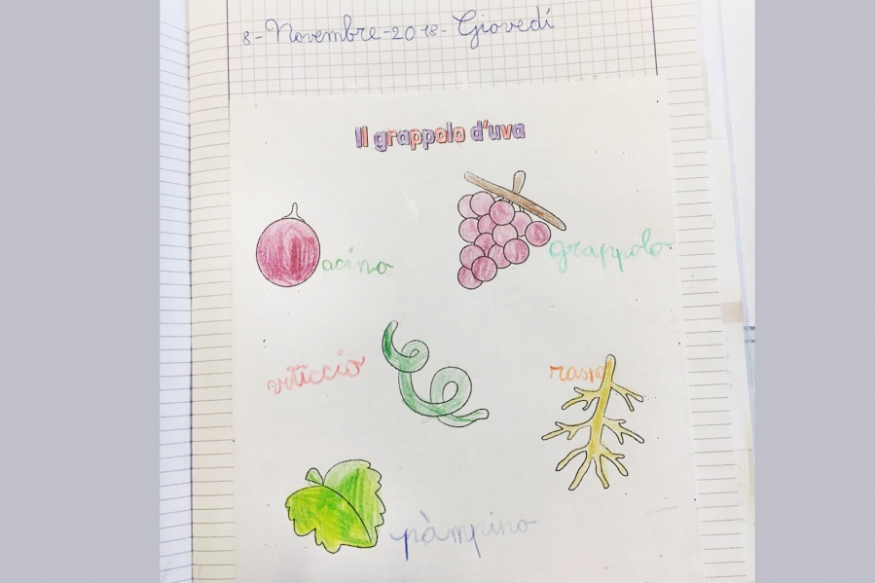 8-Novembre-2018-Giovedí
Il grappolo d'uva
acino
grappolo
viticcio
raspo
pàmpino